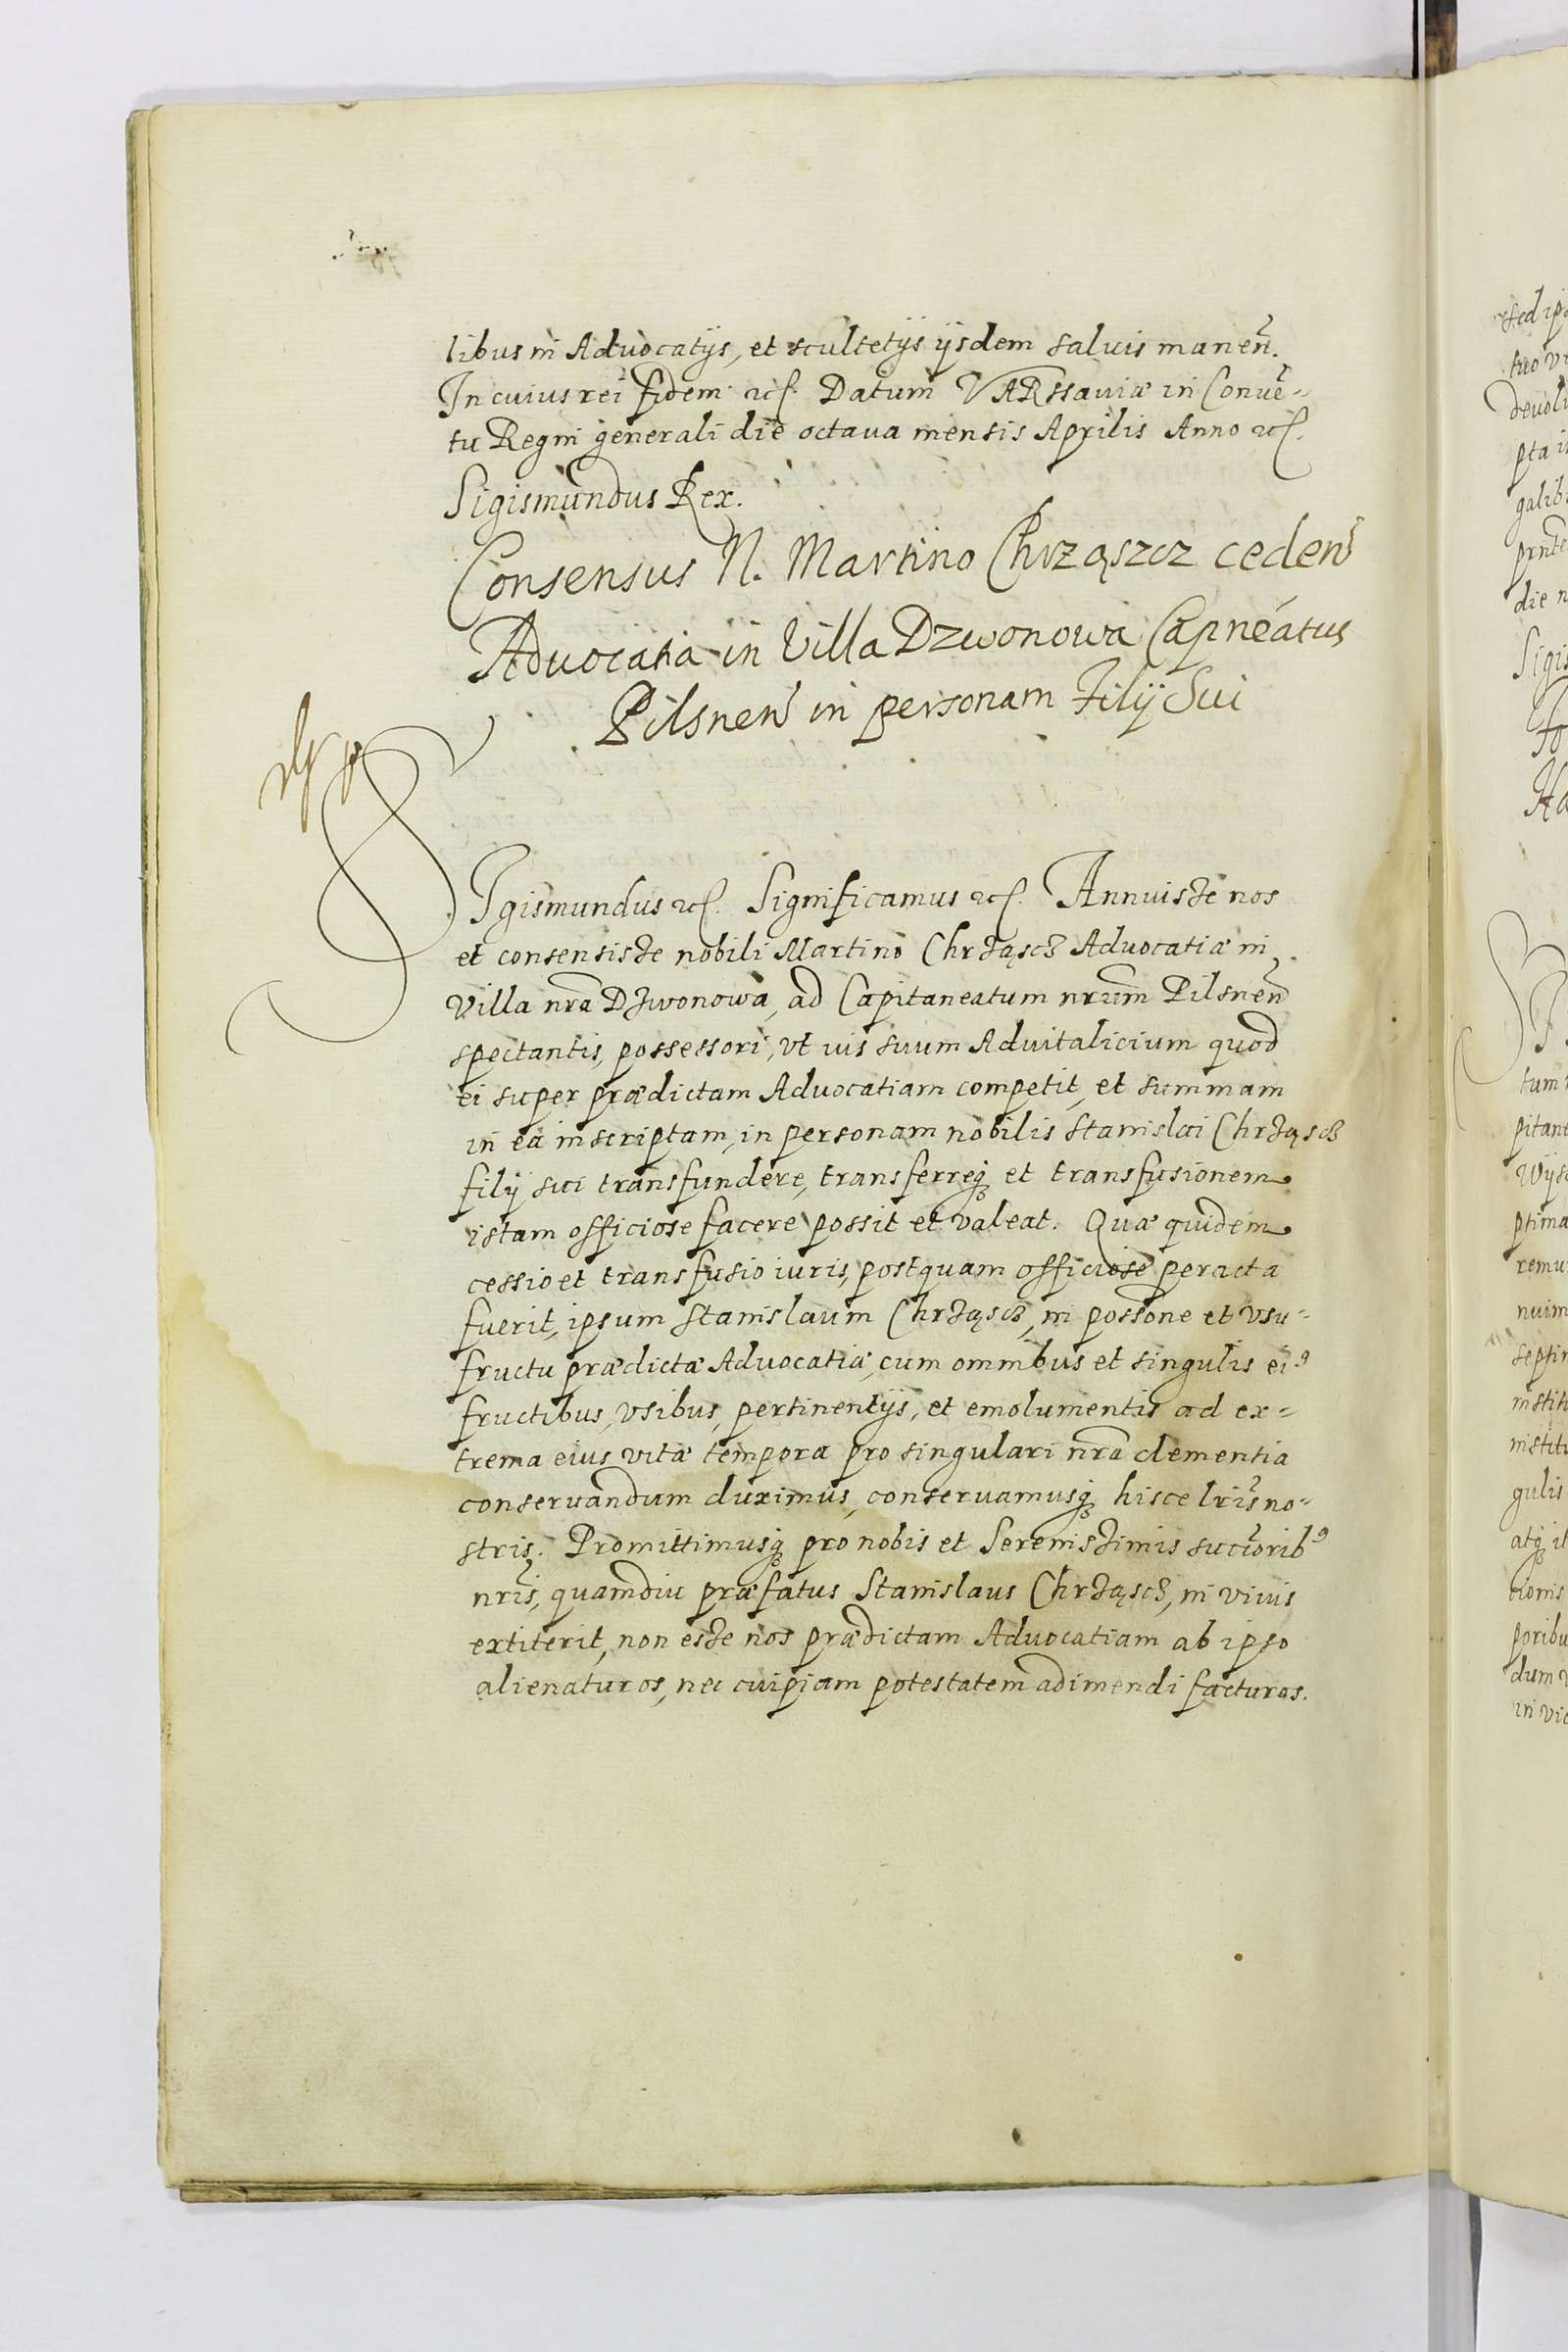 libus in Aduocatijs, et scultetijs ijsdem saluis maneñ.
In cuius rei fidem etc. Datum VARssauiæ in Conuē-
tu Regni generali die octaua mensis Aprilis Anno etc.
Sigismundus Rex.
Consensus N. Martino Chrząszcz cedeñ
Aduocatia in Villa Dzwonowa Capneatus
Pilsneñ in personam Filij Sui
SIgismundus etc. Significamus etc. Annuisse nos
et consensisse nobili Martino Chrząscz Aduocatiæ in
Villa nrã Dzwonowa, ad Capitaneatum nrũm Pilsneñ
spectantis, possessori, vt ius suum Aduitalicium quod
ei super prædictam Aduocatiam competit, et summam
in ea inscriptam, in personam nobilis Stanislai Chrząscz
filij sui transfundere, transferreq; et transfusionem
istam officiose facere possit et valeat. Quæ quidem
cessio et transfusio iuris, postquam officiose peracta
fuerit, ipsum Stanislaum Chrząscz, in possone et vsu-
fructu prædictæ Aduocatiæ, cum omnibus et singulis ei9
fructibus, vsibus, pertinentijs, et emolumentis ad ex-
trema eius vitæ tempora pro singulari nrã clementia
conseruandum duximus, conseruamusq; hisce lris no-
stris. Promittimusq; pro nobis et Serenissimis succorib9
nris, quamdiu præfatus Stanislaus Chrząscz, in viuis
extiterit, non esse nos prædictam Aduocatiam ab ipso
alienaturos, nec cuipiam potestatem adimendi facturos.